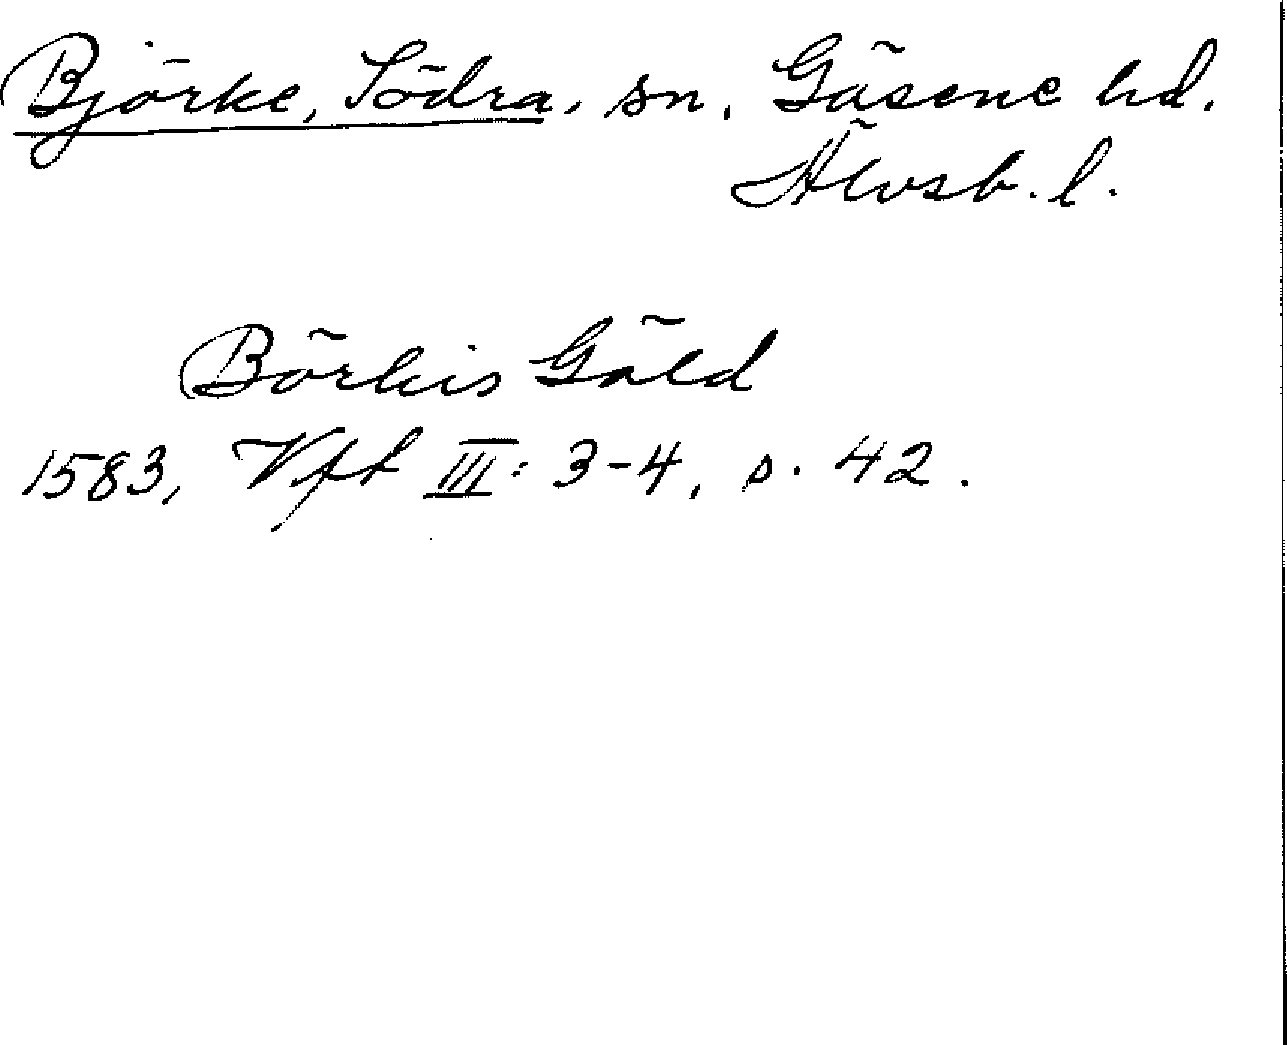 Björke, Södra, sn, Gäsene hd.
Älvsb. l.
Börkis Gäld
1583, Vft III: 3-4, s. 42.